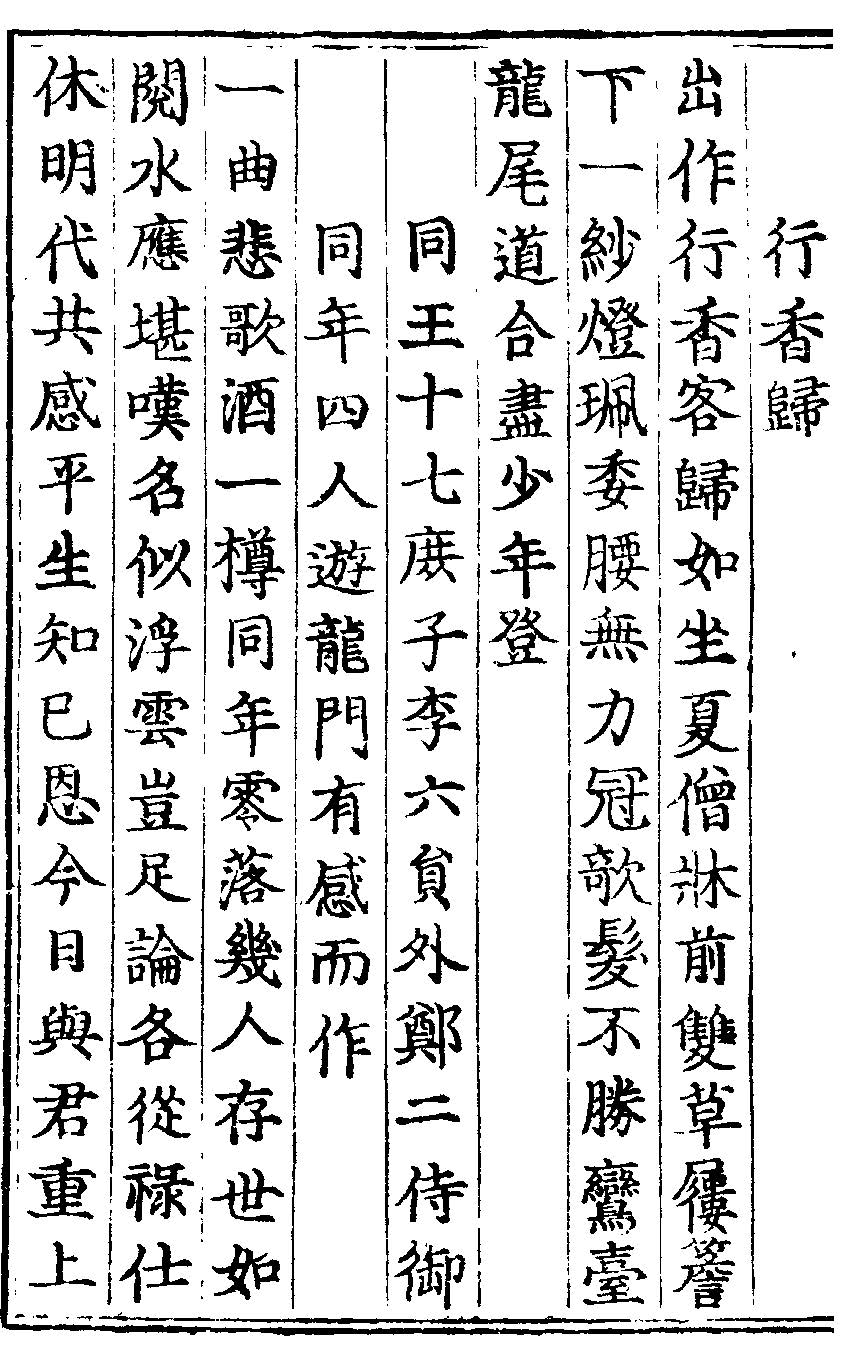 行香歸
出作行香客歸如坐夏僧牀前雙草屨簷
下一紗燈珮委腰無力冠欹髮不勝鸞臺
龍尾道合盡少年登
同王十七庶子李六貟外鄭二侍御
同年四人遊龍門有感而作
一曲悲歌酒一樽同年零落幾人存世如
閱水應堪嘆名似浮雲豈足論各從祿仕
休明代共感平生知已恩今日與君重上